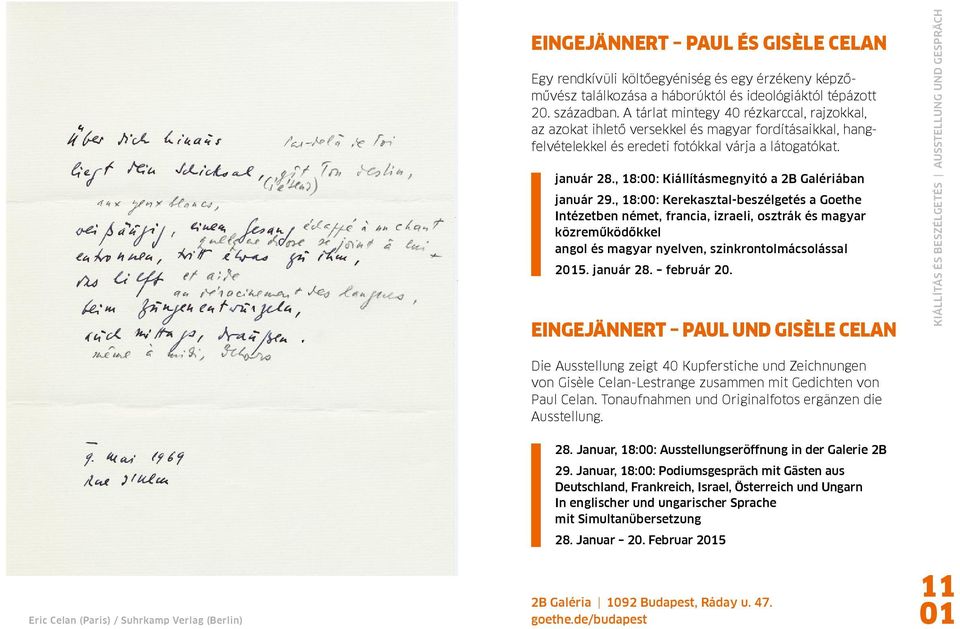 Über dich hinaus
Par-delà de Toi
liegt dein Schicksal,
gît Ton destin,
(içi étend)
aux yeux blancs,
weißäugig, einem Gesang
échappé à un chant
quelque chose se joint à lui
entronnen, tritt etwas zu ihm,
das hilft
et aide
au déracinement des langues,
beim Zungenentwurzeln,
auch mittags, draußen.
même à midi, dehors
9. Mai 1969
Rue d'Ulm
Eric Celan (Paris) / Suhrkamp Verlag (Berlin)
EINGEJÄNNERT – PAUL ÉS GISÈLE CELAN
Egy rendkívüli költőegyéniség és egy érzékeny képző-
művész találkozása a háborúktól és ideológiáktól tépázott
20. században. A tárlat mintegy 40 rézkarccal, rajzokkal,
az azokat ihlető versekkel és magyar fordításaikkal, hang-
felvételekkel és eredeti fotókkal várja a látogatókat.
január 28., 18:00: Kiállításmegnyitó a 2B Galériában
január 29., 18:00: Kerekasztal-beszélgetés a Goethe
Intézetben német, francia, izraeli, osztrák és magyar
közreműködőkkel
angol és magyar nyelven, szinkrontolmácsolással
2015. január 28. – február 20.
EINGEJÄNNERT – PAUL UND GISÈLE CELAN
Die Ausstellung zeigt 40 Kupferstiche und Zeichnungen
von Gisèle Celan-Lestrange zusammen mit Gedichten von
Paul Celan. Tonaufnahmen und Originalfotos ergänzen die
Ausstellung.
28. Januar, 18:00: Ausstellungseröffnung in der Galerie 2B
29. Januar, 18:00: Podiumsgespräch mit Gästen aus
Deutschland, Frankreich, Israel, Österreich und Ungarn
In englischer und ungarischer Sprache
mit Simultanübersetzung
28. Januar – 20. Februar 2015
2B Galéria | 1092 Budapest, Ráday u. 47.
goethe.de/budapest
KIÁLLÍTÁS ÉS BESZÉLGETÉS | AUSSTELLUNG UND GESPRÄCH
11
01